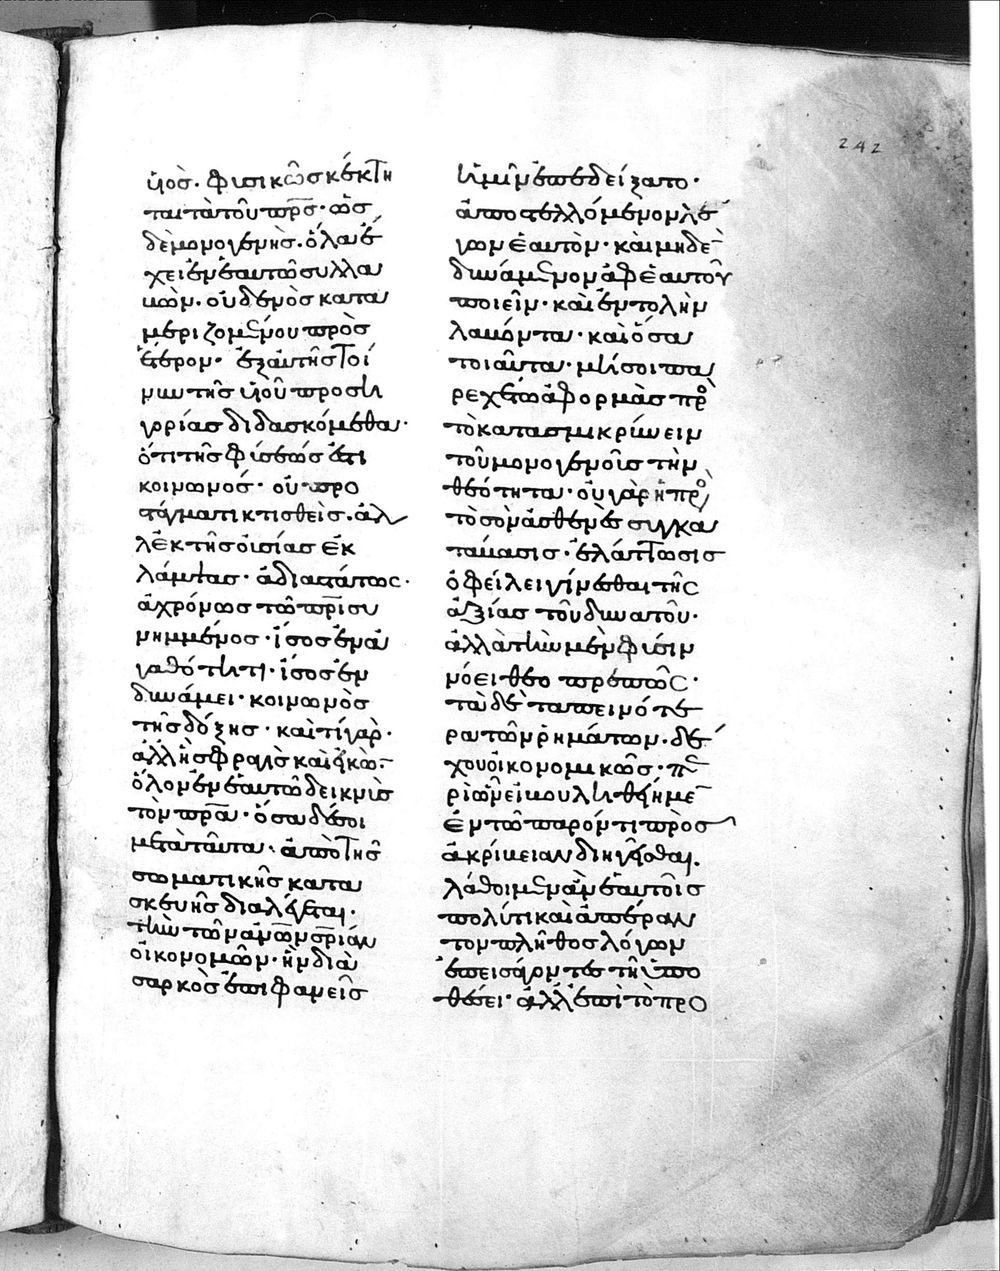 242
ϊὸς. φυσικῶς κέκτη
ται τὰ τοῦ πρς· ὡς
δὲ μονογενὴς. ὅλα ἔ
χει ἐν ἑαυτῶ συλλα
βών. οὐδενὸς κατα
μεριζομένου πρὸς
ἕτερον· ἐξ αὐτῆς τοί
νυν τῆς υἱοῦ προση
γορίας διδασκόμεθα·
ὅτι τῆς φύσεώς ἐστι
κοινωνός· οὐ προ
στάγματι κτισθεὶς. ἀλ
λ' ἐκ τῆς οὐσίας ἐκ
λάμψας· ἀδιαστάτως·
ἀχρόνως τῶ πρι συ
νημμένος· ἴσος ἐν ἀ
γαθότητι· ἴσος ἐν
δυνάμει· κοινωνὸς
τῆς δόξης· καὶ τί γὰρ·
ἀλλ' ἢ σφραγὶς καὶ εἰκὼν
ὅλον ἐν ἑαυτῶ δεικνὺς
τὸν πρα· ὅσα δέ σοι
μετὰ ταῦτα· ἀπὸ τῆς
σωματικῆς κατα
σκευῆς διαλέγεται·
τὴν τῶν ανων σριαν
οἰκονομῶν· ἣν διὰ
σαρκὸς ἐπιφανεὶς
ἡμῖν ἐπεδείξατο·
ἀποστελλόμενον λέ
γων ἑαυτὸν· καὶ μηδὲ
δυνάμενον ἀφ' ἑαυτοῦ
ποιεῖν· καὶ ἐντολὴν
λαβόντα· καὶ ὅσα
τοιαῦτα· μή σοι πα
ρεχέτω ἀφορμὰς πρ
τὸ κατασμικρύνειν
τοῦ μονογενοῦς τὴν
θεότητα· οὐ γὰρ ἡ πρ
τὸ σὸν ἀσθενὲς συγκα
τάβασις· ἐλάττωσις
ὀφείλει γίνεσθαι τῆς
ἀξίας τοῦ δυνατοῦ·
ἀλλὰ τὴν μὲν φύσιν
νόει θεοπρεπῶς·
τὰ δὲ ταπεινότε
ρα τῶν ῥημάτων. δέ
χου οἰκονομικῶς· πε
ρὶ ὧν εἰ βουληθείημεν
ἐν τῶ παρόντι πρὸς
ἀκρίβειαν διηγεῖσθαι.
λάθοιμεν ἂν ἑαυτοῖς
πολύ τι καὶ ἀπέραν
τον πλῆθος λόγων
ἐπεισάγοντες τῆ ὑπο
θέσει· ἀλλ' ἐπὶ τὸ προ